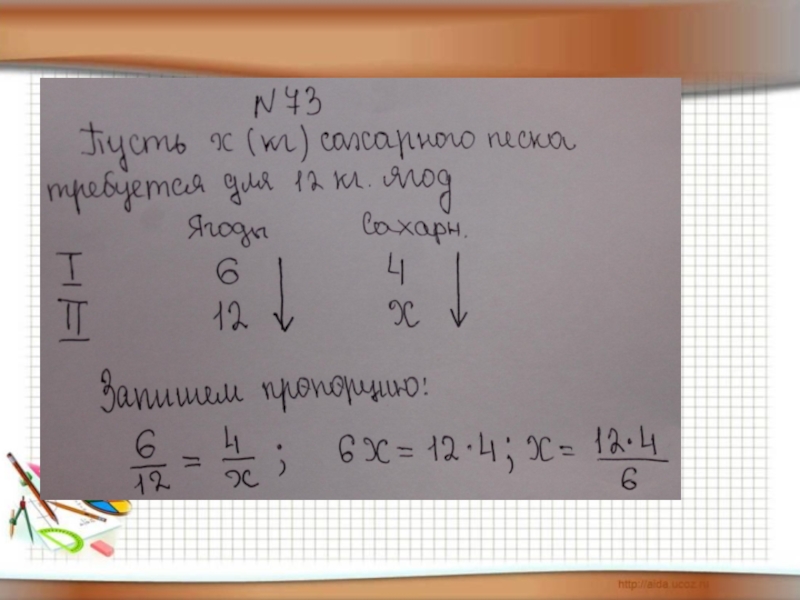 N 73
Пусть x (кг) сахарного песка
требуется для 12 кг. ягод
Ягоды Сахарн.
I 6 4
II 12 x
Запишем пропорцию:
6/12 = 4/x ; 6x = 12·4; x = 12·4/6
http://aida.ucoz.ru